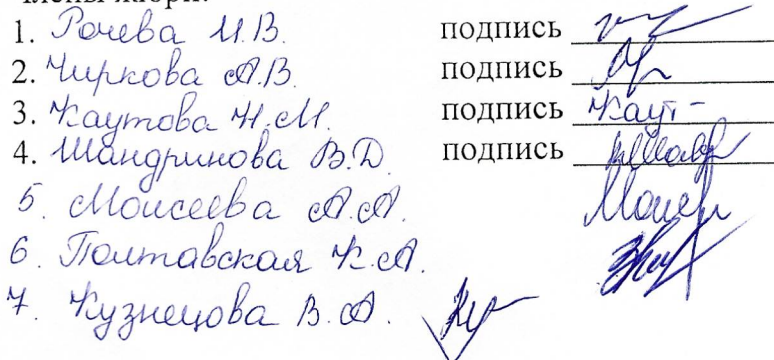 Члены жюри:
1. Рочева И.В. подпись
2. Чиркова А.В. подпись
3. Каутова Н.М. подпись Каут-
4. Шандринова В.Д. подпись
5. Моисеева А.А.
6. Полтавская К.А.
7. Кузнецова В.А.